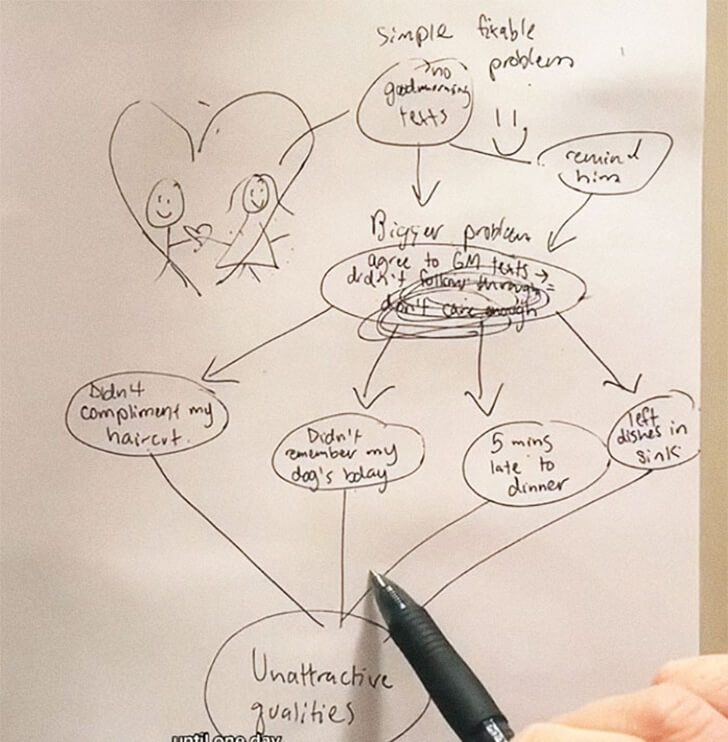 Simple fixable
problem
no
goodmorning
texts
remind
him
Bigger problem
agree to GM texts →
didn't follow through =
don't care enough
Didn't
compliment my
haircut.
Didn't
remember my
dog's bday
5 mins
late to
dinner
left
dishes in
sink
Unattractive
qualities
until one day